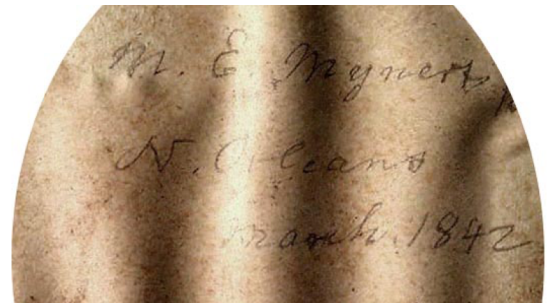 M. E. Mynert
N. Orleans
March. 1842